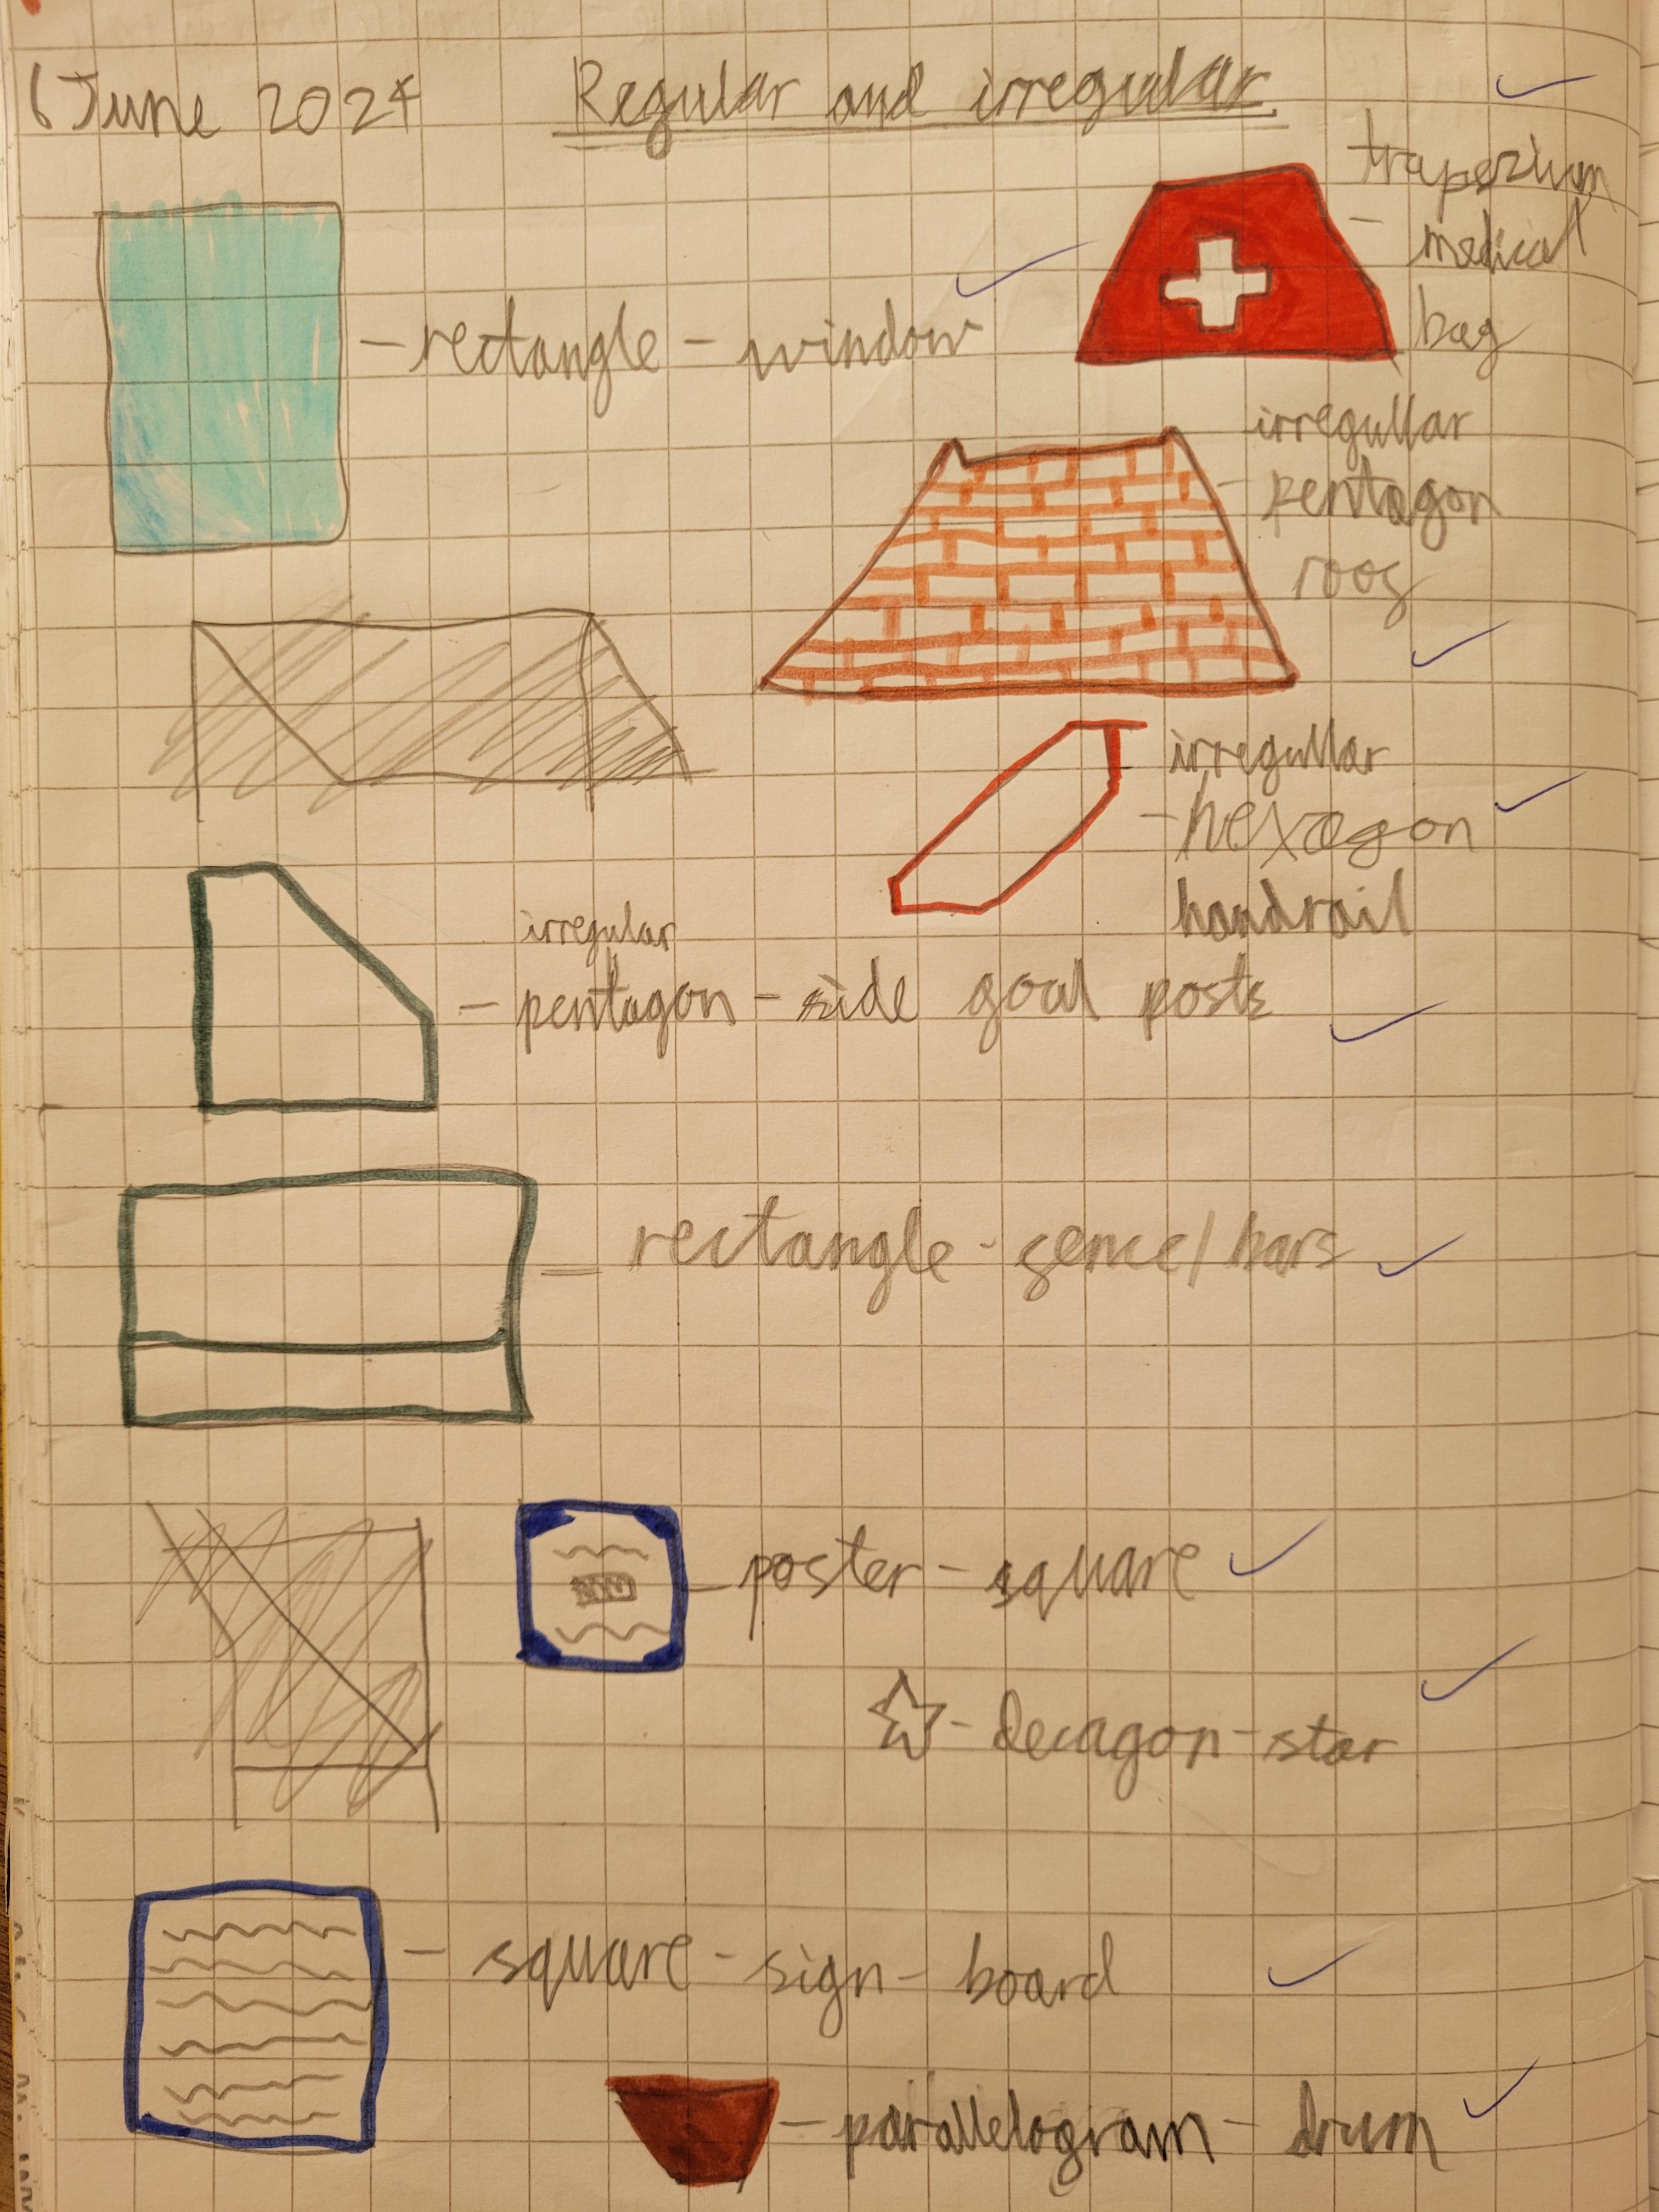 6 June 2024 Regular and irregular.
trapezium
medical
bag
- rectangle - window
irregullar
- pentagon
roof
irregullar
- hexagon
handrail
irregular
- pentagon - side goal posts
- rectangle - fence/bars
- poster - square
- decagon - star
- square - sign - board
- parallelogram - drum